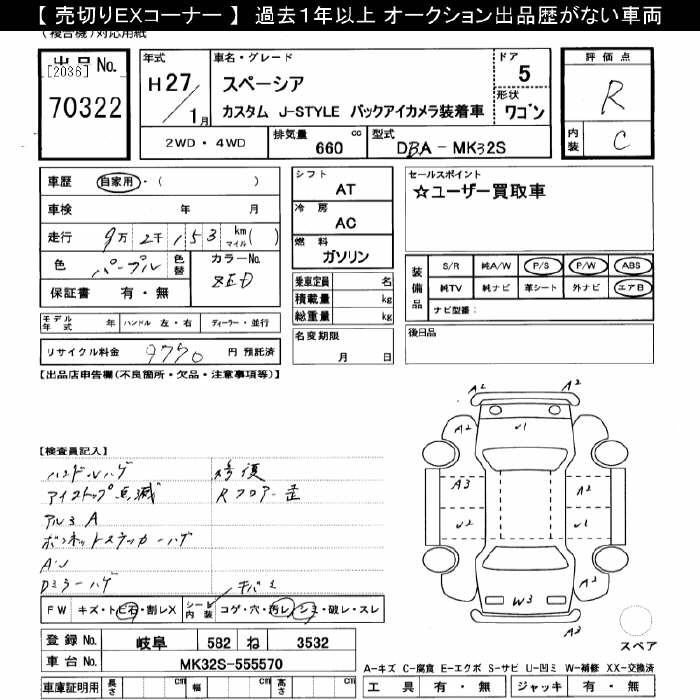 【 売切りEXコーナー 】 過去1年以上 オークション出品歴がない車両
(複合機)対応用紙
出品No.
[2036]
70322
年式
H27/1月
車名・グレード
スペーシア
カスタム J-STYLE バックアイカメラ装着車
ドア
5
形状
ワゴン
評価点
R
内装
C
2WD・4WD
排気量 660 cc
型式 DBA-MK32S
車歴 自家用・( )
車検 年 月
走行 9万2千153 km マイル( )
色 パープル 色替
カラーNo. ZED
保証書 有・無
シフト
AT
冷房
AC
燃料
ガソリン
乗車定員 名
積載量 kg
総重量 kg
名変期限
月 日
セールスポイント
☆ユーザー買取車
装備品
S/R 純A/W P/S P/W ABS
純TV 純ナビ 革シート 外ナビ エアB
ナビ型番：
後日品
モデル年式 年 ハンドル 左・右 ディーラー・並行
リサイクル料金 9770 円 預託済
【出品店申告欄(不良箇所・欠品・注意事項等)】
【検査員記入】
ハンドルハゲ 修復
アイストップ点滅 Rフロアー歪
アルミ A
ボンネットステッカーハゲ
AU
Dミラーハゲ
キバミ
FW キズ・ト ヒ石・割レX
シート内装 コゲ・穴・汚レ・シミ・破レ・スレ
登録No. 岐阜 582 ね 3532
車台No. MK32S-555570
車庫証明用 長さ cm 幅 cm 高さ cm
A2 A2
A2 U1 A2
A3 A2
U2 U1
A2 A3
W3
A3
スペア
A-キズ C-腐食 E-エクボ S-サビ U-凹ミ W-補修 XX-交換済
工具 有・無 ジャッキ 有・無